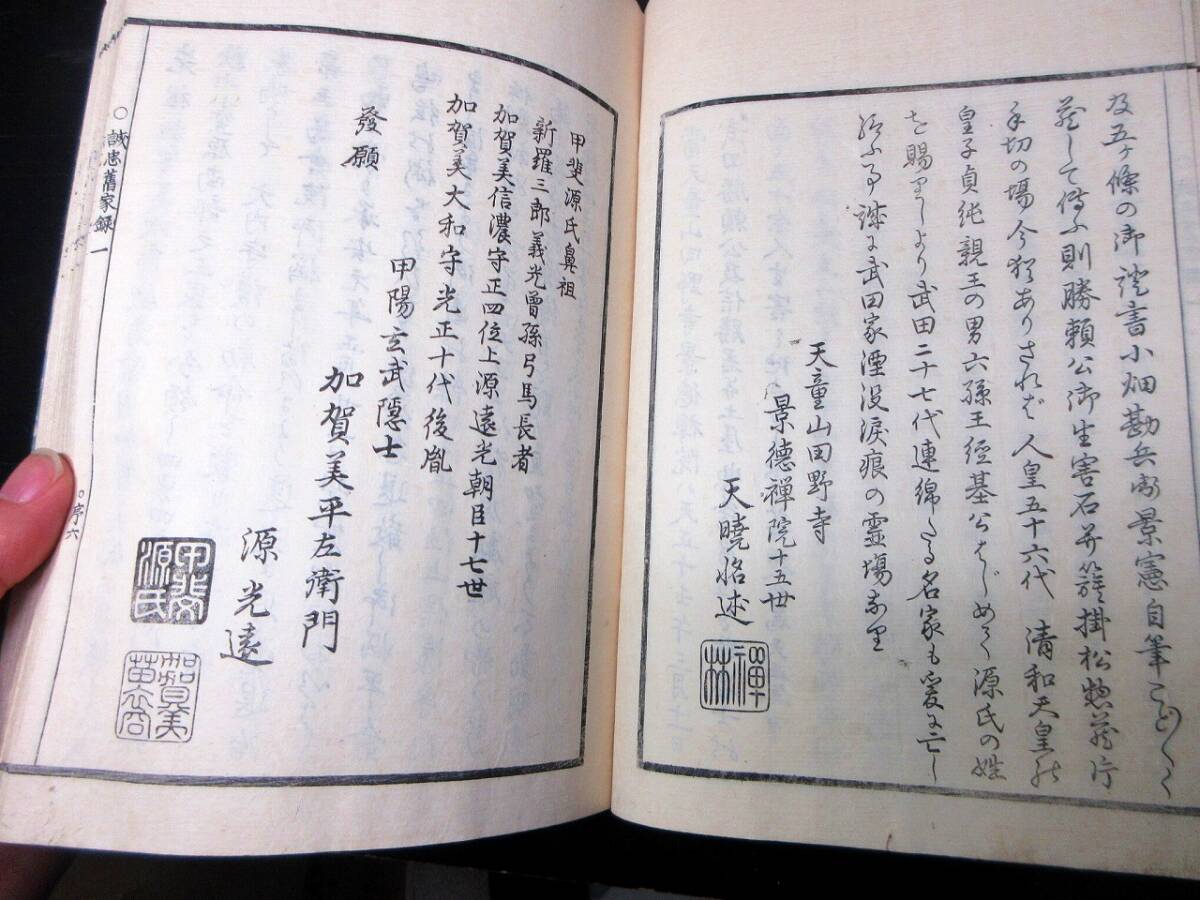 及五ケ條の御證書小畑勘兵衛景憲自筆こと〴〵く
蔵して傳ふ則勝頼公御生害石并籏掛松惣蔵片
手切の場今猶ありされば人皇五十六代 清和天皇の
皇子貞純親王の男六孫王經基公はじめて源氏の姓
を賜りしより武田二十七代連綿たる名家も爰に亡し
給ふ事誠に武田家湮没涙痕の霊場なり
天童山田野寺
景德禪院十五世
天曉 述
禪林
甲斐源氏鼻祖
新羅三郎義光曾孫弓馬長者
加賀美信濃守正四位上源遠光朝臣十七世
加賀美大和守光正十代後胤
甲陽玄武隱士
發願 加賀美平左衛門
源光遠
甲斐源氏
加賀美
○誠忠舊家録一
○序六